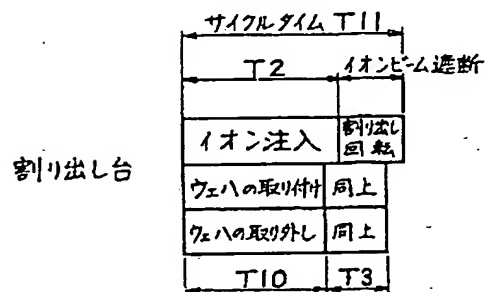 サイクルタイム T11
T2 イオンビーム遮断
イオン注入 割り出し
回転
割り出し台
ウェハの取り付け 同上
ウェハの取り外し 同上
T10 T3